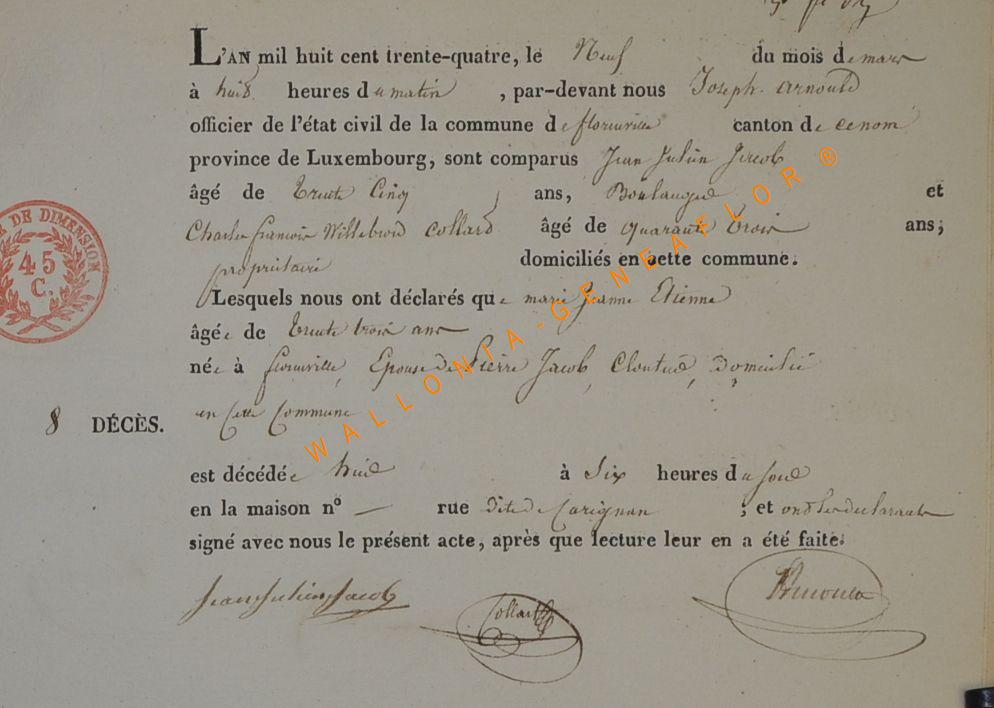 L'AN mil huit cent trente-quatre, le Neuf du mois de mars
à huit heures du matin, par-devant nous Joseph Arnould
officier de l'état civil de la commune de florenville canton de
province de Luxembourg, sont comparus Jean Julien Jacob
âgé de Trente Cinq ans, Boulanger et
Charles françois Willebrord Collard âgé de quarante trois ans;
propriétaire domiciliés en cette commune.
Lesquels nous ont déclarés que marie Jeanne Etienne
âgée de trente trois ans
née à florenville, Epouse de Pierre Jacob, Cloutier, Domicilié
8 DÉCÈS. en Cette Commune
est décédée à Six heures du soir
en la maison nº — rue dite de Carignan ; et ont les declarants
signé avec nous le présent acte, après que lecture leur en a été faite.
Jean Julien Jacob Collard Arnould
DE DIMENSION
45
C.
WALLONIA-GENEAFLOR®